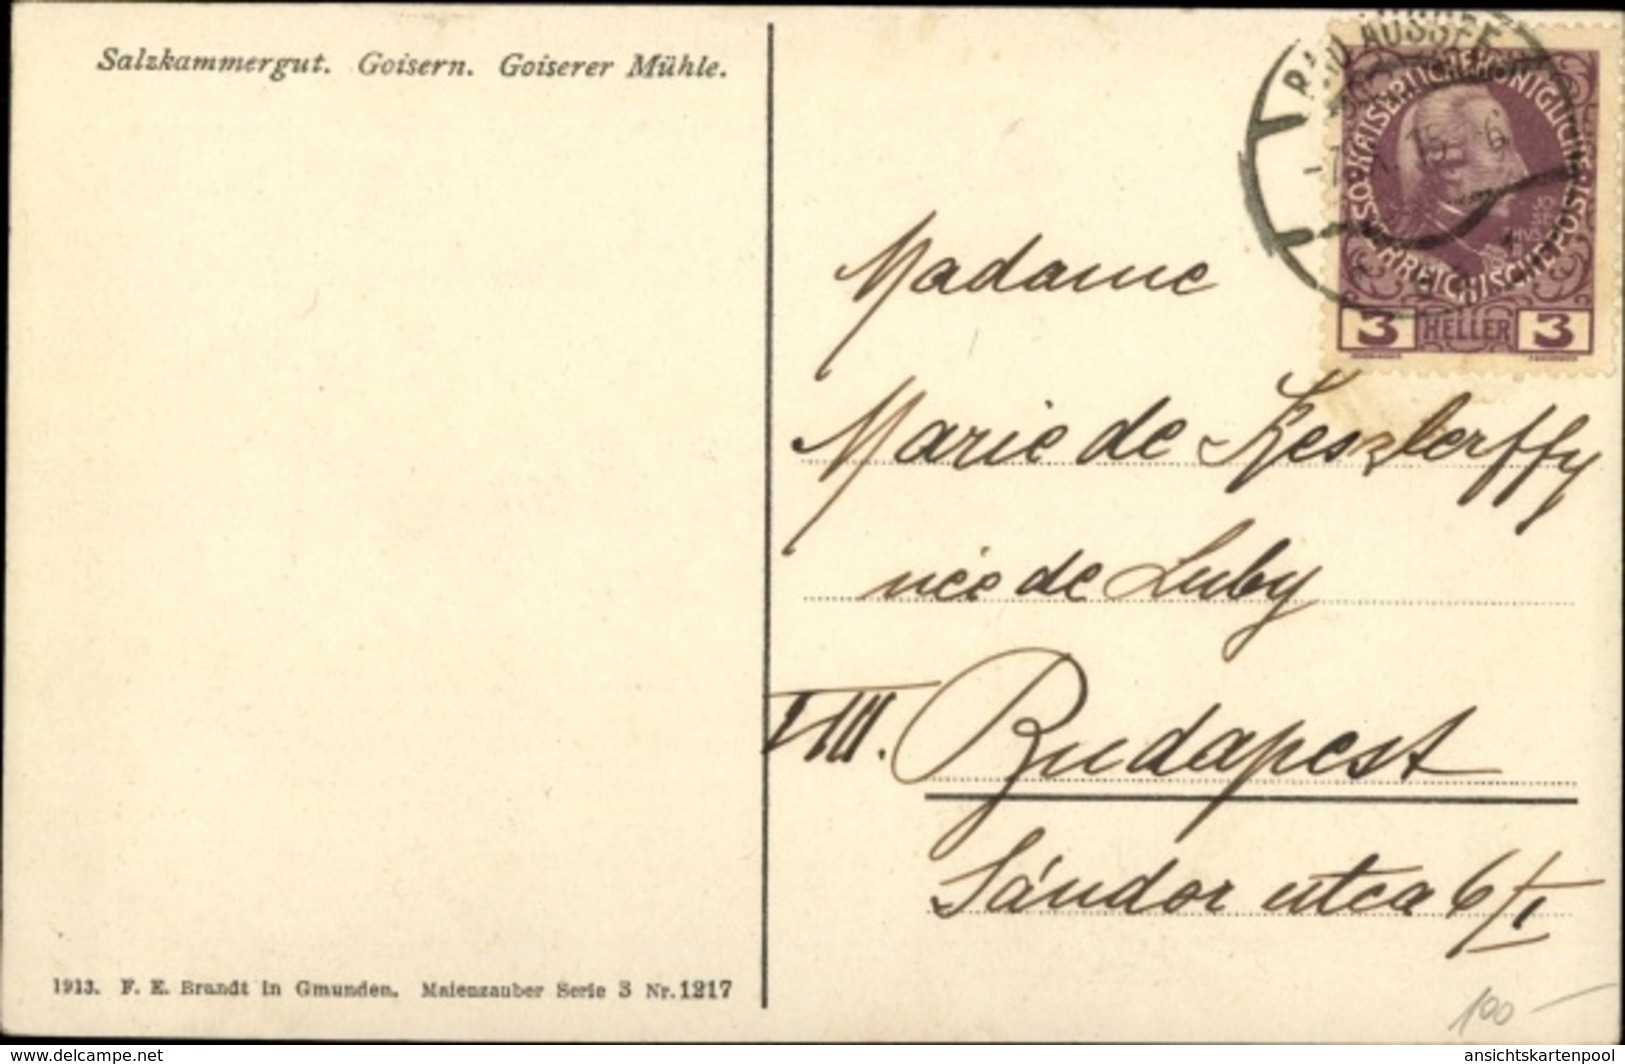 Salzkammergut. Goisern. Goiserer Mühle.
BAD AUSSEE
KAISERLICHE KÖNIGLICHE ÖSTERREICHISCHE POST
3 HELLER 3
Madame
Marie de Keszlerffy
née de Luby
VIII. Budapest
Sándor utca 6/I
1913. F. E. Brandt in Gmunden. Maienzauber Serie 3 Nr. 1217
100 –
https://www.delcampe.net
ansichtskartenpool